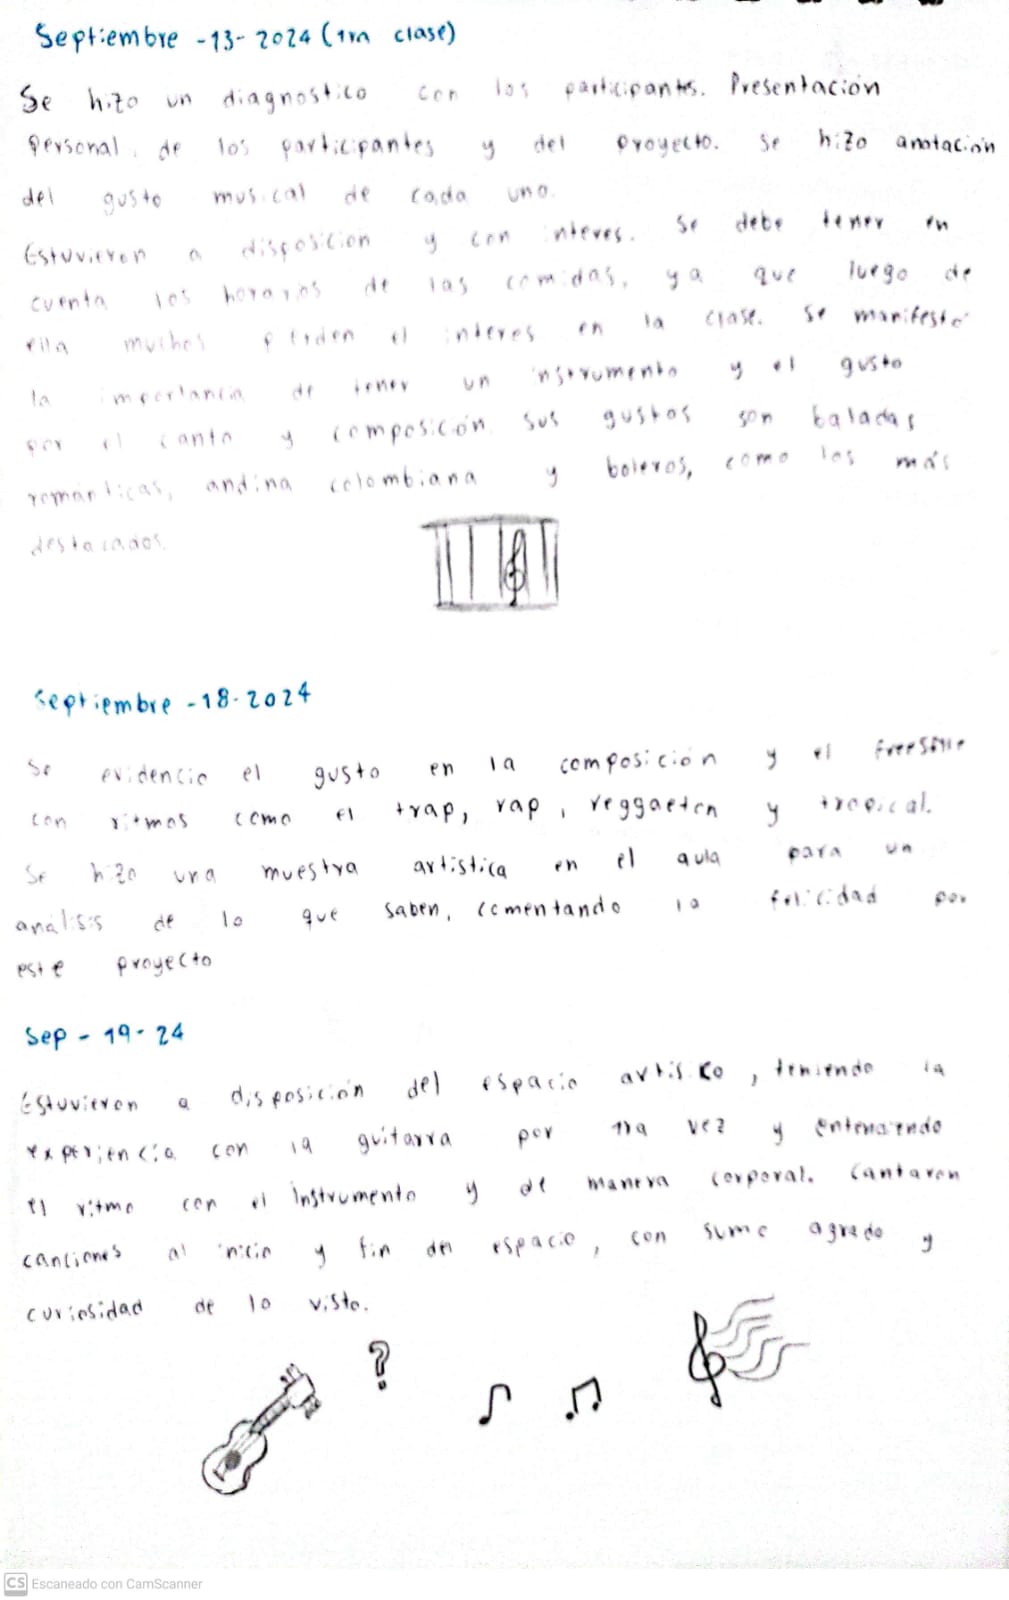 Septiembre -13- 2024 (1ra clase)
Se hizo un diagnostico con los participantes. Presentación
personal, de los participantes y del proyecto. Se hizo anotación
del gusto musical de cada uno.
Estuvieron a disposicion y con interes. Se debe tener en
cuenta los horarios de las comidas, ya que luego de
ella muchos pierden el interes en la clase. Se manifestó
la importancia de tener un instrumento y el gusto
por el canto y composición. Sus gustos son baladas
románticas, andina colombiana y boleros, como los más
destacados.
Septiembre -18-2024
Se evidencio el gusto en la composición y el freestyle
con ritmos como el trap, rap, reggaeton y tropical.
Se hizo una muestra artistica en el aula para un
análisis de lo que saben, comentando la felicidad por
este proyecto
Sep - 19- 24
Estuvieron a disposición del espacio , teniendo la
experiencia con la guitarra por 1ra vez y entendiendo
el ritmo con el instrumento y de manera corporal. Cantaron
canciones al inicio y fin del espacio, con sumo agrado y
curiosidad de lo visto.
?
CS Escaneado con CamScanner